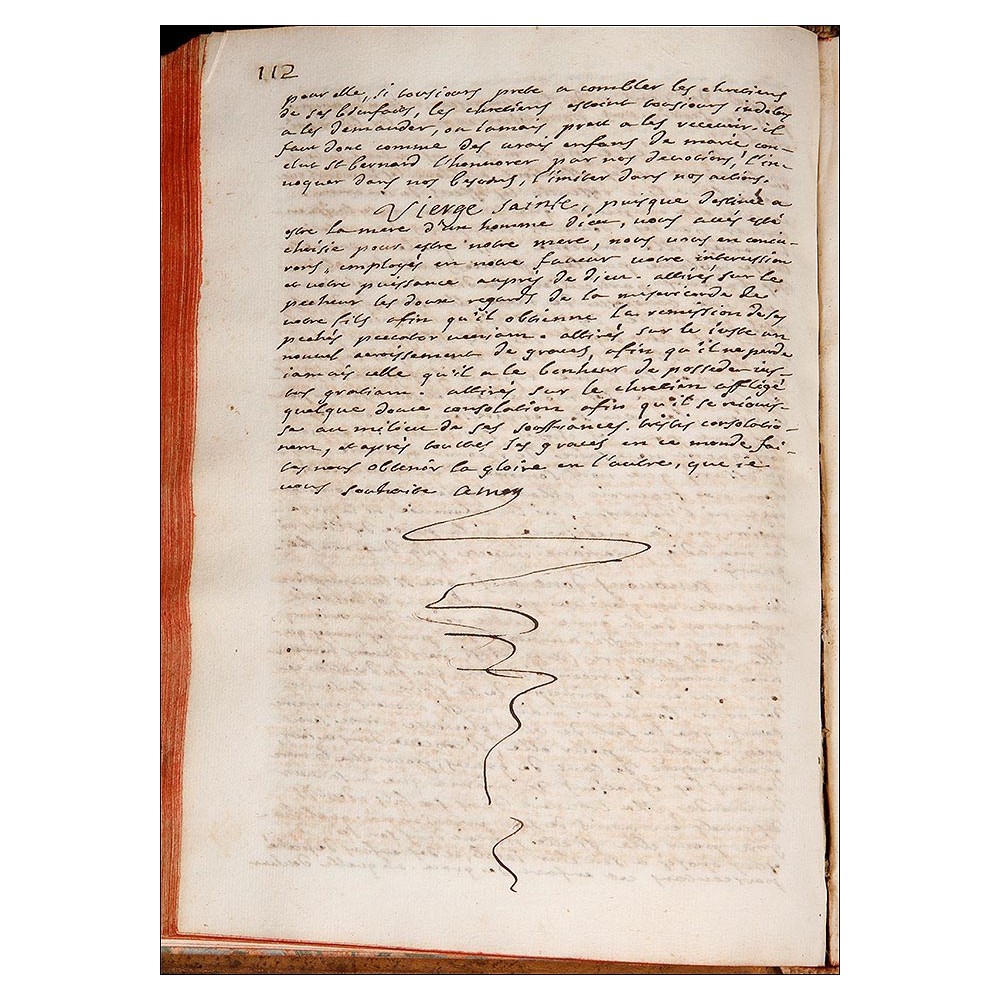 112
pour elle, si tousiours prete a combler les chretiens
de ses bienfaits, les chretiens estoint tousiours
a les demander, ou iamais pret a les recevoir. il
faut donc comme des vrais enfans de marie con-
clut st bernard l'honnorer par nos devotions, l'in-
voquer dans nos besoins, l'imiter dans nos actions.
Vierge sainte, puisque destinée a
estre la mere d'un homme dieu, vous avés esté
choisie pour estre notre mere, nous vous en coniu-
rons, employés en notre faveur votre intercession
et votre puissance auprés de dieu. attirés sur le
pecheur les doux regards de la misericorde de
votre fils afin qu'il obtienne la remission de ses
pechés peccator veniam. attirés sur le iuste un
nouvel accroissement de graces, afin qu'il ne perde
iamais celle qu'il a le bonheur de posseder ius-
tus gratiam. attirés sur le chretien affligé
quelque douce consolation afin qu'il se reiouis-
se au milieu de ses souffrances. tristis consolatio-
nem, et aprés toutes ses graces en ce monde fai-
tes nous obtenir la gloire en l'autre, que ie
vous souhaite amen